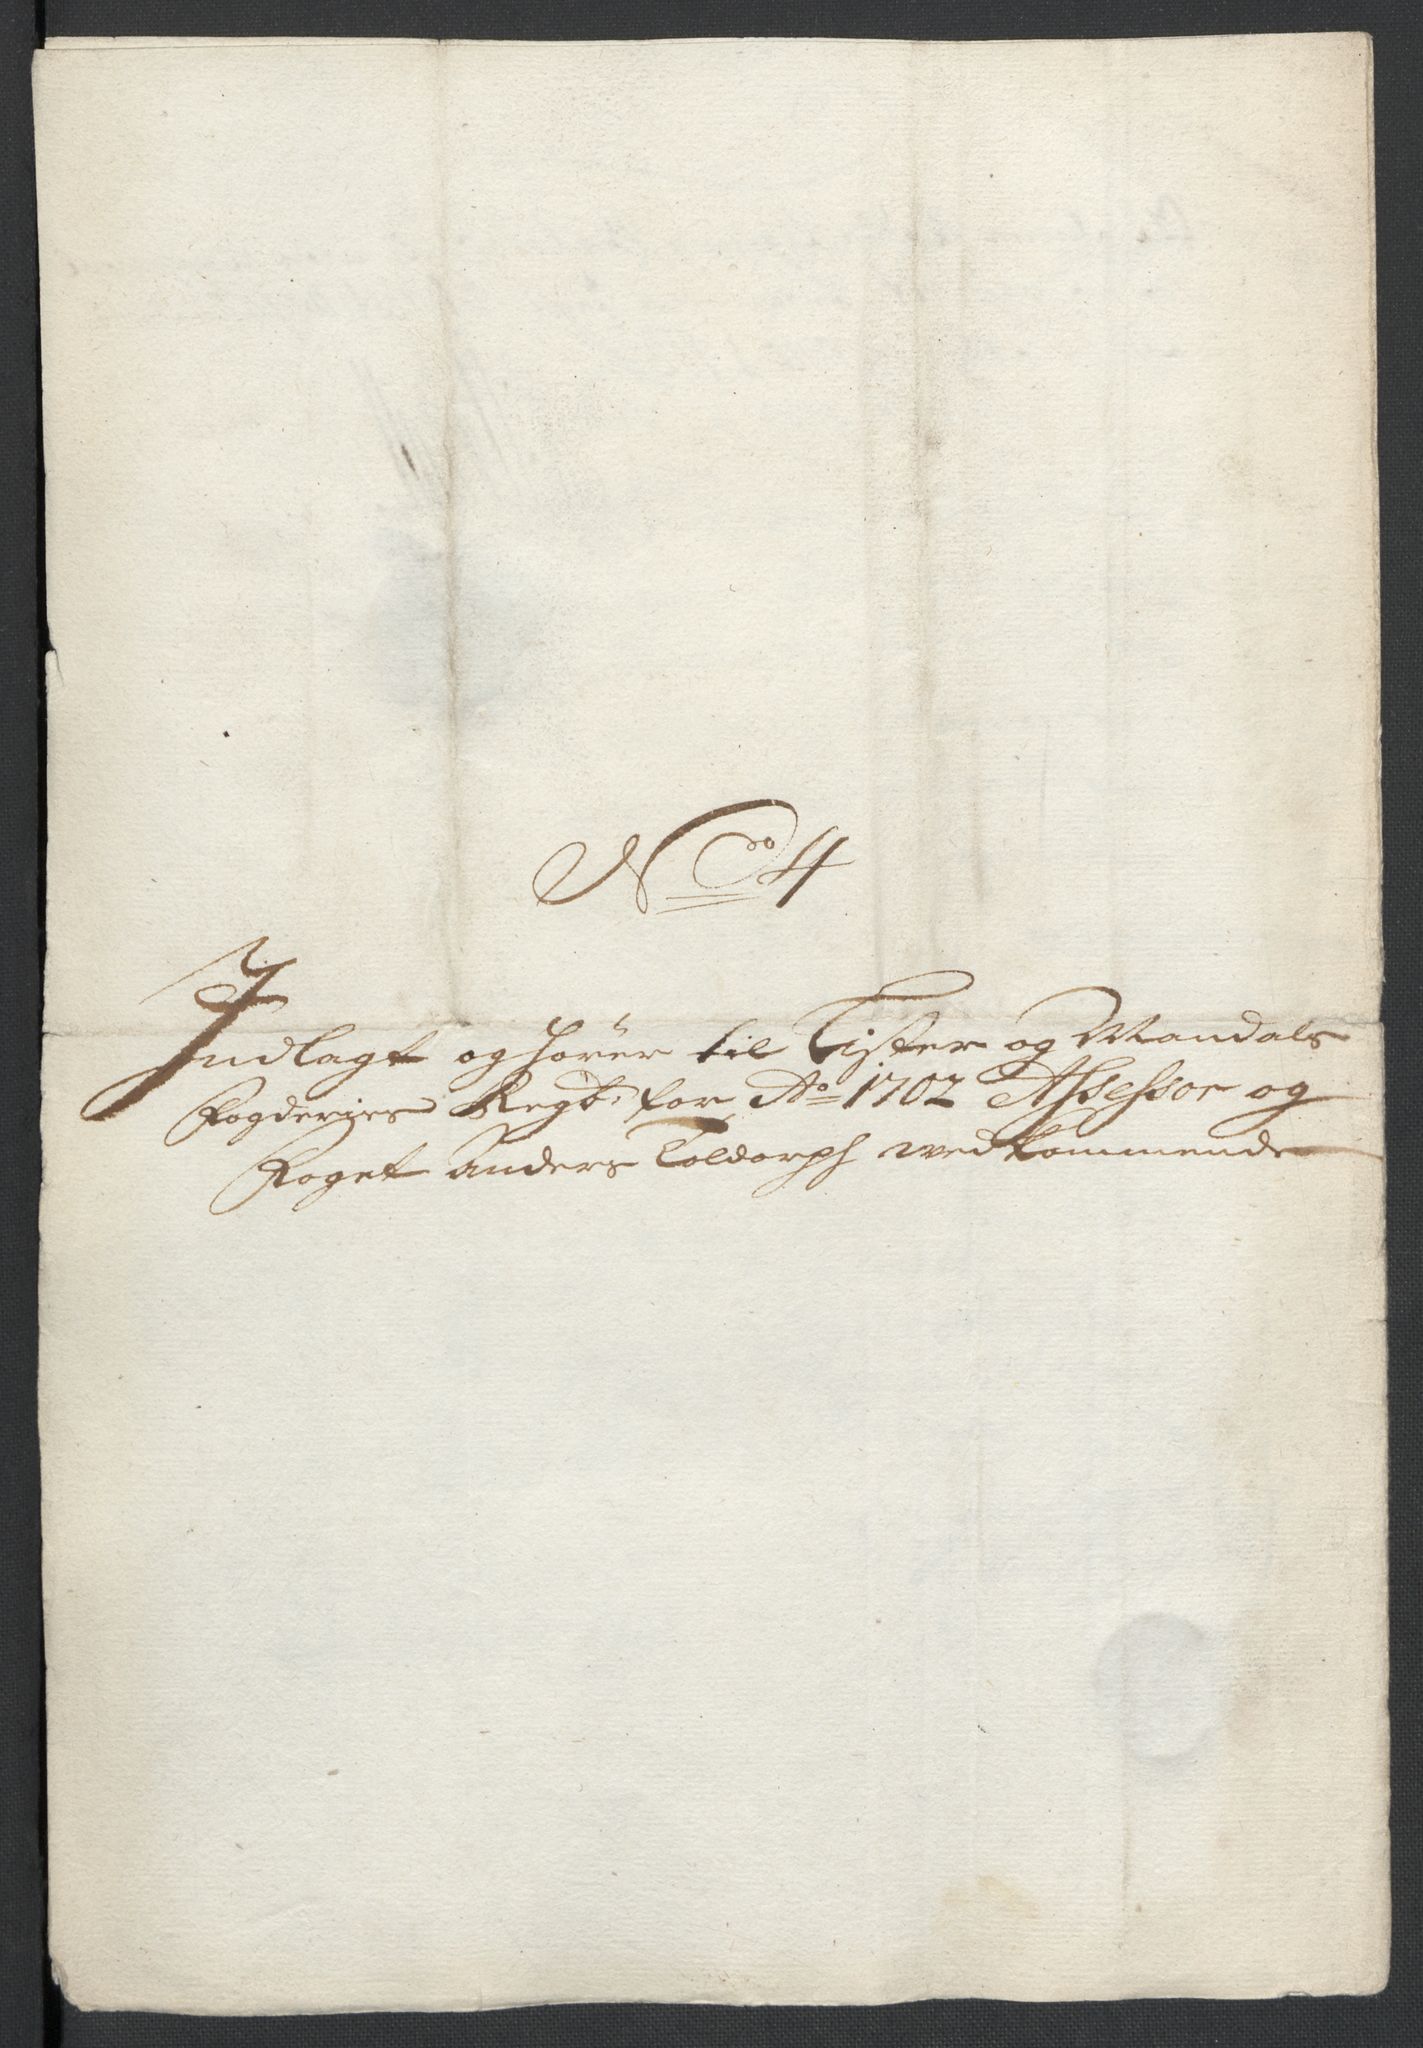 No 4
Indlagt og hører til Lister og Mandals
Fogderies Regb: for Ao 1702 Assessor og
Foget Anders Toldorph vedkommende